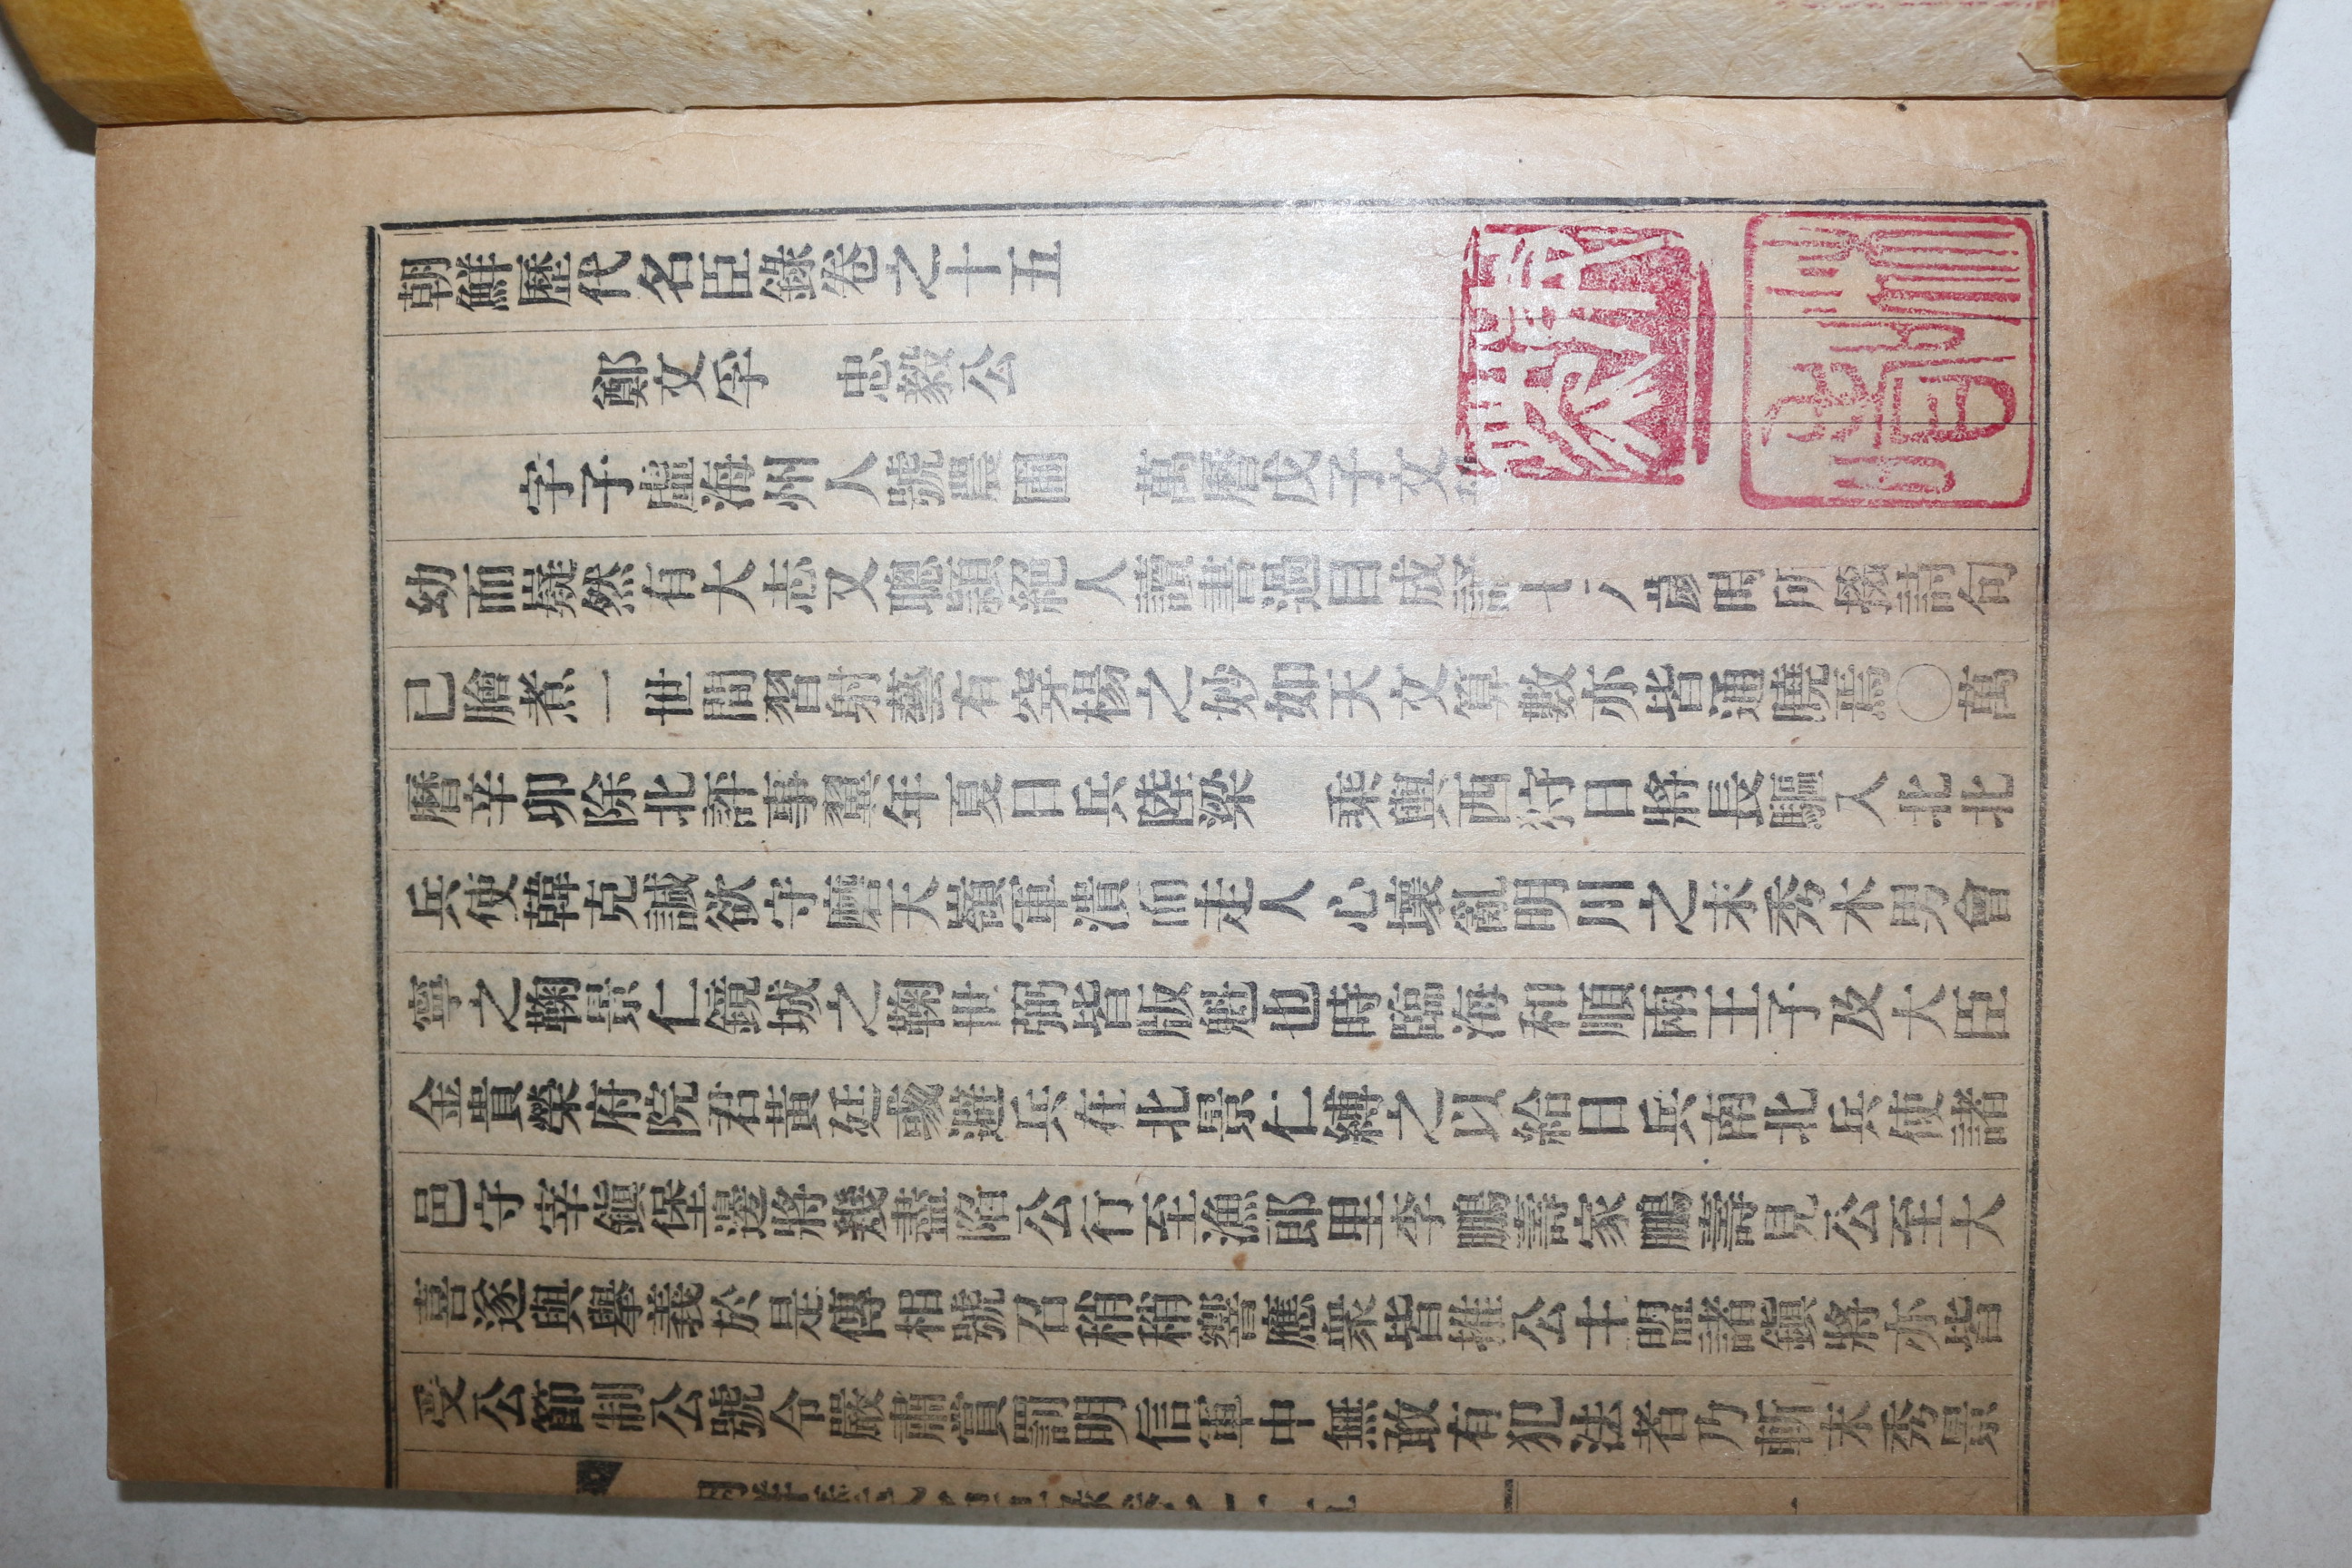 朝鮮歷代名臣錄卷之十五
鄭文孚 忠毅公
字子虛海州人號農圃 萬曆戊子文
幼而嶷然有大志又聰穎絕人讀書過目成誦七八歲時所掇詩句
已膾煮一世間習射藝有穿楊之妙如天文算數亦皆通曉焉〇萬
曆辛卯除北評事翼年夏日兵陸梁 乘輿西狩日將長驅入北北
兵使韓克諴欲守磨天嶺軍潰而走人心壞亂明川之末秀木男會
寧之鞠景仁鏡城之鞠世弼皆版魁也時臨海和順兩王子及大臣
金貴榮府院君黃廷彧避兵在北景仁縛之以給日兵南北兵使諸
邑守宰鎭堡邊將幾盡陷公行至漁郎里李鵬壽家鵬壽見公至大
喜遂與擧義於是傳相號召稍稍響應衆皆推公主盟諸鎭將亦皆
受公節制公號令嚴肅賞罰明信軍中無敢有犯法者乃斬末秀景